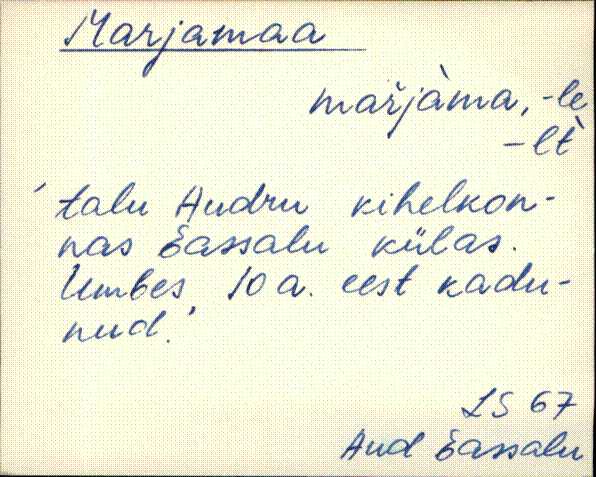 Marjamaa
mařjàma, -le
-lt̀
'talu Audru kihelkon-
nas Eassalu külas.
Umbes 10 a. eest kadu-
nud.'
LS 67
Aud Eassalu